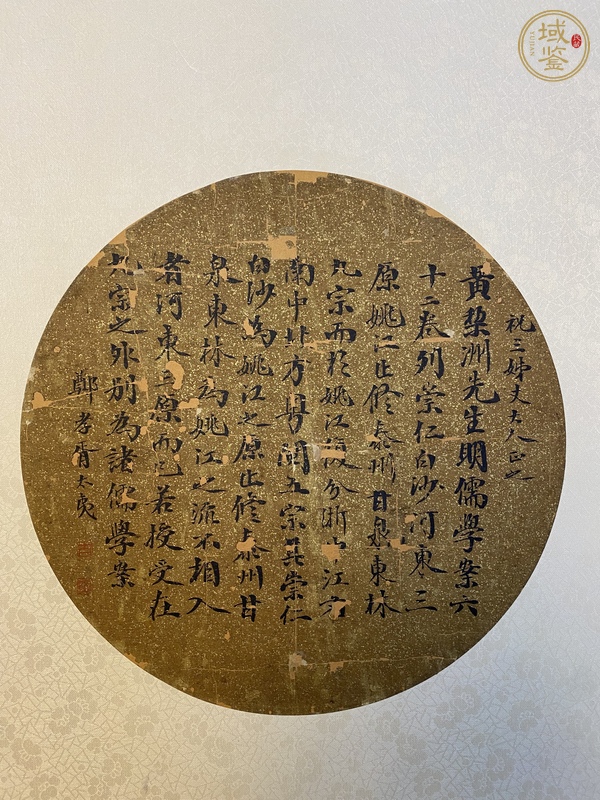 祝三姊丈大人正之
黄梨洲先生明儒學案六
十二卷列崇仁白沙河東三
原姚江止修泰州甘泉東林
九宗而於姚江復分浙中江右
南中北方粤閩五宗其崇仁
白沙為姚江之原止修泰州甘
泉東林為姚江之流不相入
者河東三原而已若授受在
九宗之外別為諸儒學案
鄭孝胥太夷
域鑒
YUJIAN